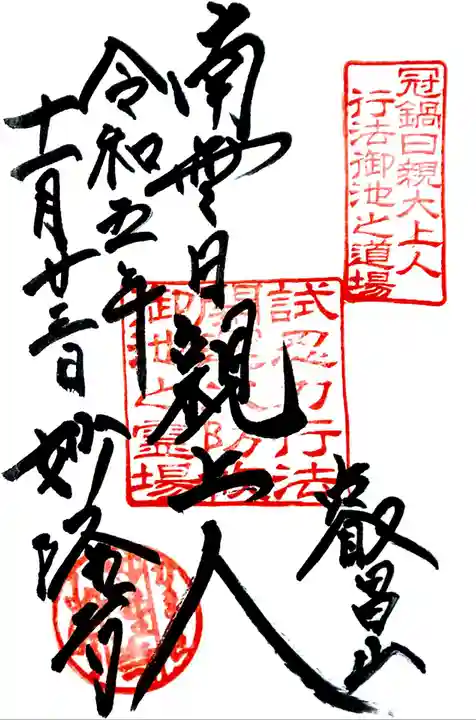 冠鍋日親大上人
行法御池之道場
叡昌山
南無日親上人
令和五年
十一月廿三日 妙隆寺
試忍力行法
御池之霊場